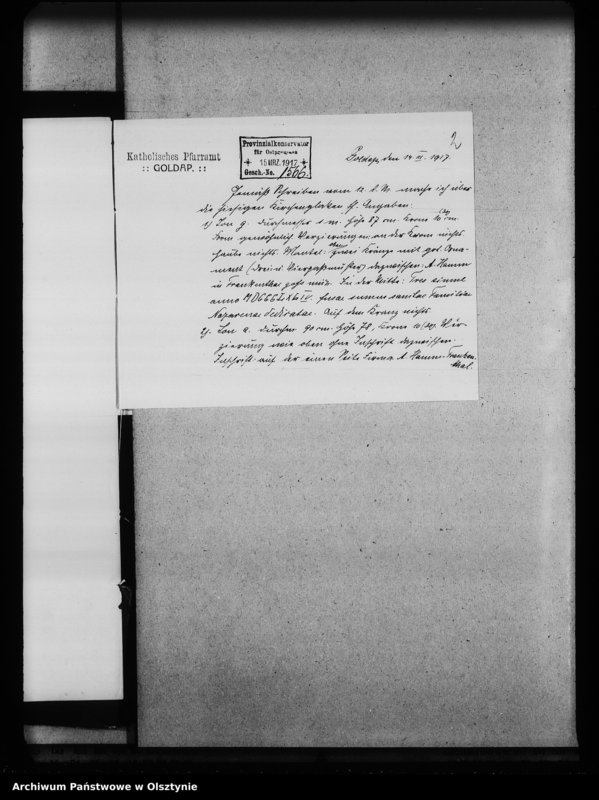 2
Katholisches Pfarramt
:: GOLDAP. ::
Provinzialkonservator
für Ostpreussen
15 MRZ. 1917
Gesch.-No. 1566.
Goldap, den 14 III. 1917.
Gemäß Schreiben vom 12. d. M. mache ich über
die hiesigen Kirchenglocken ff. Angaben:
1) Ton g. Durchmesser 1 m. Höhe 87 cm. Krone 16 cm.
Form gewöhnlich. Verzierungen: an der Krone nichts
Haube nichts. Mantel: oben zwei Kränze mit got. Orna-
ment dazwischen: A. Hamm
in Frankenthal goß mich. In der Mitte: Tres simul
anno fusae sumus sanctae Familiae
Nazarenae dedicatae. Auf dem Kranz nichts
2) Ton a. Durchm. 90 cm. Höhe 78, Krone Ver-
zierung wie oben ohne Inschrift dazwischen.
Inschrift: auf der einen Seite Firma A Hamm-Franken-
thal.
Archiwum Państwowe w Olsztynie